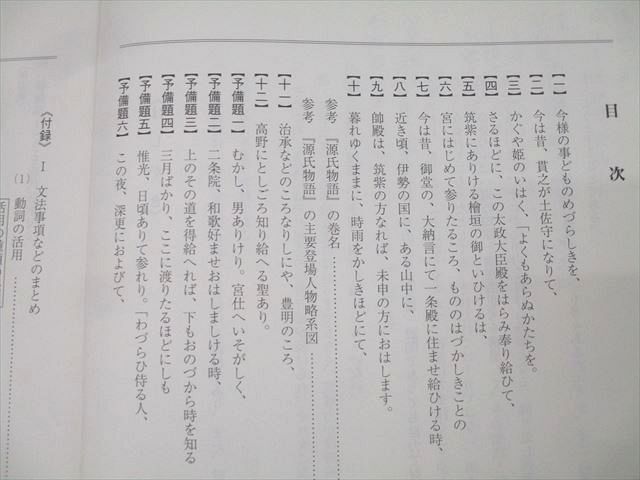 目次
【一】 今様の事どものめづらしきを、
【二】 今は昔、貫之が土佐守になりて、
【三】 かぐや姫のいはく、「よくもあらぬかたちを。
【四】 さるほどに、この太政大臣殿をはらみ奉り給ひて、
【五】 筑紫にありける檜垣の御といひけるは、
【六】 宮にはじめて参りたるころ、もののはづかしきことの
【七】 今は昔、御堂の、大納言にて一条殿に住ませ給ひける時、
【八】 近き頃、伊勢の国に、ある山中に、
【九】 帥殿は、筑紫の方なれば、未申の方におはします。
【十】 暮れゆくままに、時雨をかしきほどにて、
参考 『源氏物語』の巻名……………
参考 『源氏物語』の主要登場人物略系図……………
【十一】 治承などのころなりしにや、豊明のころ、
【十二】 高野にとしごろ知り給へる聖あり。
【予備題一】 むかし、男ありけり。宮仕へいそがしく、
【予備題二】 二条院、和歌好ませおはしましける時、
【予備題三】 上のその道を得給へれば、下もおのづから時を知る
【予備題四】 三月ばかり、ここに渡りたるほどにしも
【予備題五】 惟光、日頃ありて参れり。「わづらひ侍る人、
【予備題六】 この夜、深更におよびて、
《付録》 Ⅰ 文法事項などのまとめ
(1) 動詞の活用……………